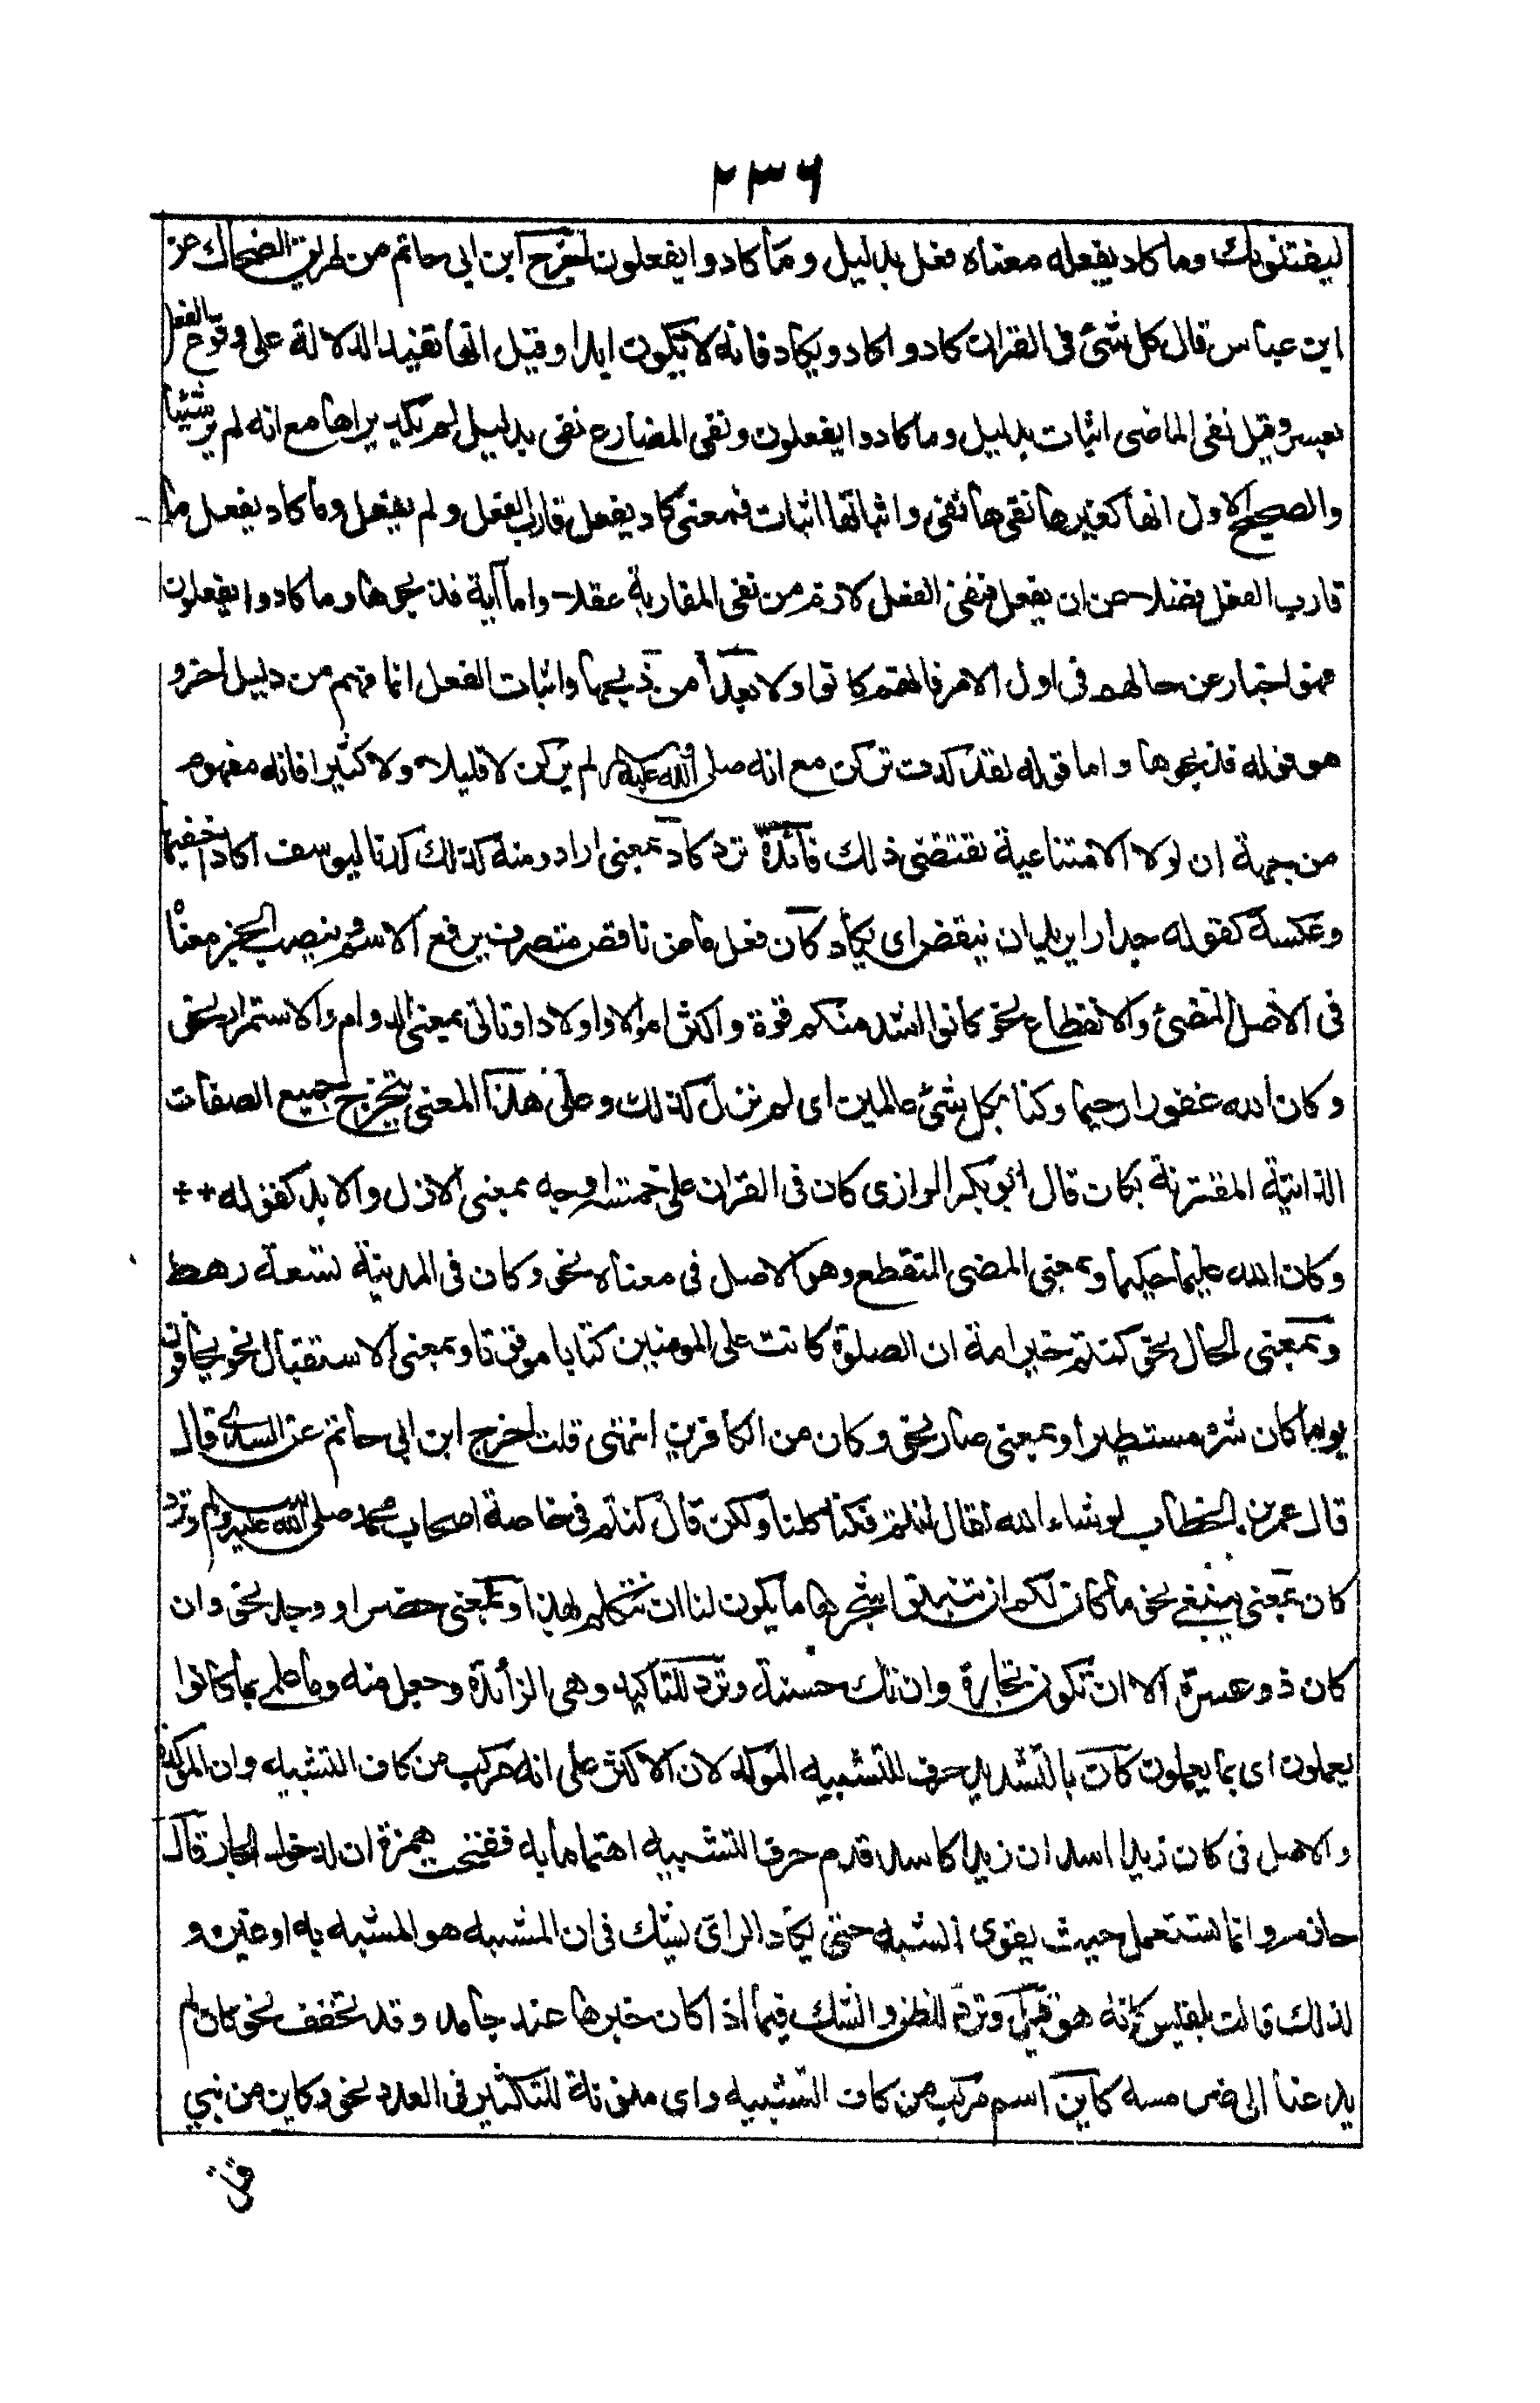 ٢٣٦
ليفتنونك وما كاد يفعله معناه فعل بدليل وما كادوا يفعلون اخرج ابن ابى حاتم من طريق الضحاك عن
ابن عباس قال كل شئ فى القران كاد واكاد ويكاد فانه لا يكون ابدا وقيل انها تفيد الدلالة على وقوع الفعل
بعسر وقيل نفى الماضى اثبات بدليل وما كادوا يفعلون ونفى المضارع نفى بدليل لم يكد يراها مع انه لم ير شيئا
والصحيح الاول انها كغيرها نفيها نفى واثباتها اثبات فمعنى كاد يفعل قارب الفعل ولم يفعل وما كاد يفعل ما
قارب الفعل فضلا عن ان يفعل فنفى الفعل لازم من نفى المقاربة عقلا واما آية فذبحوها وما كادوا يفعلون
فهو اخبار عن حالهم فى اول الامر فانهم كانوا ولا بعدا من ذبحها واثبات الفعل انما فهم من دليل اخر و
هو قوله فذبحوها واما قوله لقد كدت تركن مع انه صلى الله عليه وسلم لم يركن لا قليلا ولا كثيرا فانه مفهوم
من جهة ان لولا الامتناعية تقتضى ذلك فائدة ترد كاد بمعنى اراد ومنه كذلك كدنا ليوسف اكاد اخفيها
وعكسه كقوله جدارا يريد ان ينقض اى يكاد كان فعل ماض ناقص متصرف يرفع الاسم وينصب الخبر معناه
فى الاصل المضى والانقطاع نحو كانوا اشد منكم قوة واكثر اموالا واولادا وتاتى بمعنى الدوام والاستمرار نحو
وكان الله غفورا رحيما وكنا بكل شئ عالمين اى لم نزل كذلك وعلى هذا المعنى يتخرج جميع الصفات
الذاتية المقترنة بكان قال ابو بكر الرازى كان فى القران على خمسة اوجه بمعنى الازل والابد كقوله **
وكان الله عليما حكيما وبمعنى المضى المنقطع وهو الاصل فى معناه نحو وكان فى المدينة تسعة رهط
وبمعنى الحال نحو كنتم خير امة ان الصلوة كانت على المومنين كتابا موقوتا وبمعنى الاستقبال نحو يخافون
يوما كان شره مستطيرا وبمعنى صار نحو وكان من الكافرين انتهى قلت اخرج ابن ابى حاتم عن السدى قال
قال عمر بن الخطاب لو شاء الله لقال انتم فكنا كلنا ولكن قال كنتم فى خاصة اصحاب محمد صلى الله عليه وسلم وترد
كان بمعنى ينبغى نحو ما كان لكم ان تنبتوا شجرها ما يكون لنا ان نتكلم بهذا وبمعنى حضر او وجد نحو وان
كان ذو عسرة الا ان تكون تجارة وان تك حسنة وترد للتاكيد وهى الزائدة وجعل منه وما علمى بما كانوا
يعملون اى بما يعملون كأن بالتشديد حرف للتشبيه الموكد لان الاكثر على انه مركب من كاف التشبيه وان الموكدة
والاصل فى كان زيدا اسد ان زيدا كاسد قدم حرف التشبيه اهتماما به ففتحت همزة ان لدخول الجار قال
حازم وانما تستعمل حيث يقوى الشبه حتى يكاد الرائى يشك فى ان المشبه هو المشبه به او غيره و
لذلك قالت بلقيس كانه هو قيل وترد للظن والشك فيما اذا كان خبرها غير جامد وقد تخفف نحو كان لم
يدعنا الى ضر مسه كاين اسم مركب من كاف التشبيه واى منونة للتكثير فى العدد نحو وكاين من نبي